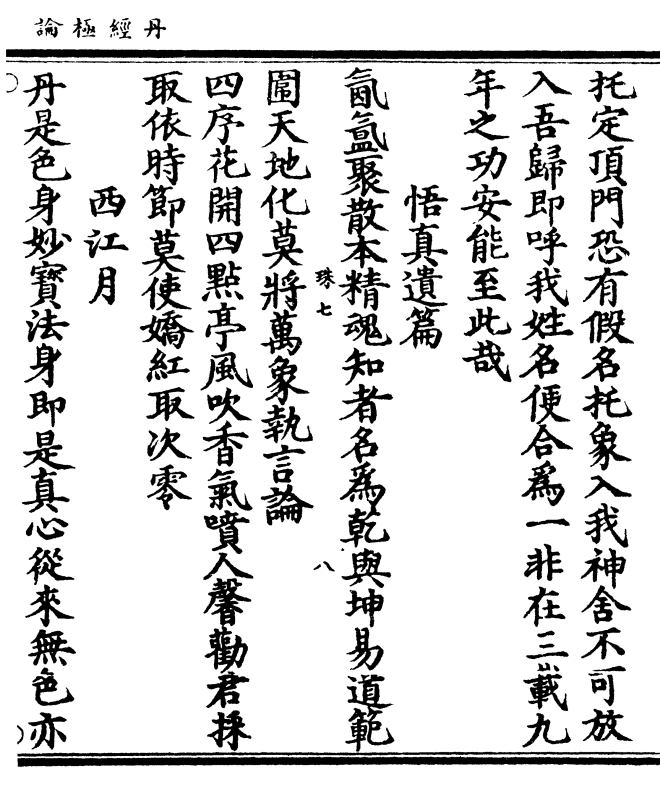 丹經極論
托定頂門恐有假名托象入我神舍不可放
入吾歸即呼我姓名便合爲一非在三載九
年之功安能至此哉
悟真遺篇
氤氳聚散本精魂知者名爲乾與坤易道範
圍天地化莫將萬象執言論
珠七
八
四序花開四點亭風吹香氣噴人馨勸君採
取依時節莫使嬌紅取次零
西江月
丹是色身妙寶法身即是真心從來無色亦